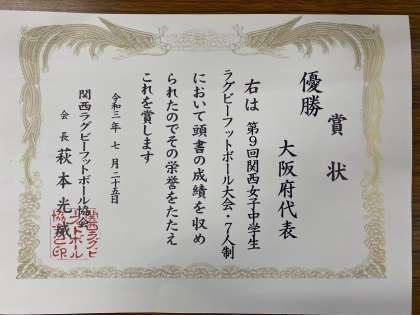 賞状
優勝
大阪府代表
右は 第9回関西女子中学生
ラグビーフットボール大会・7人制
において頭書の成績を収め
られたのでその栄誉をたたえ
これを賞します
令和三年 七月二十五日
関西ラグビーフットボール協会
会長 萩本光威
関西ラグビ
ーフットボール
協会之印